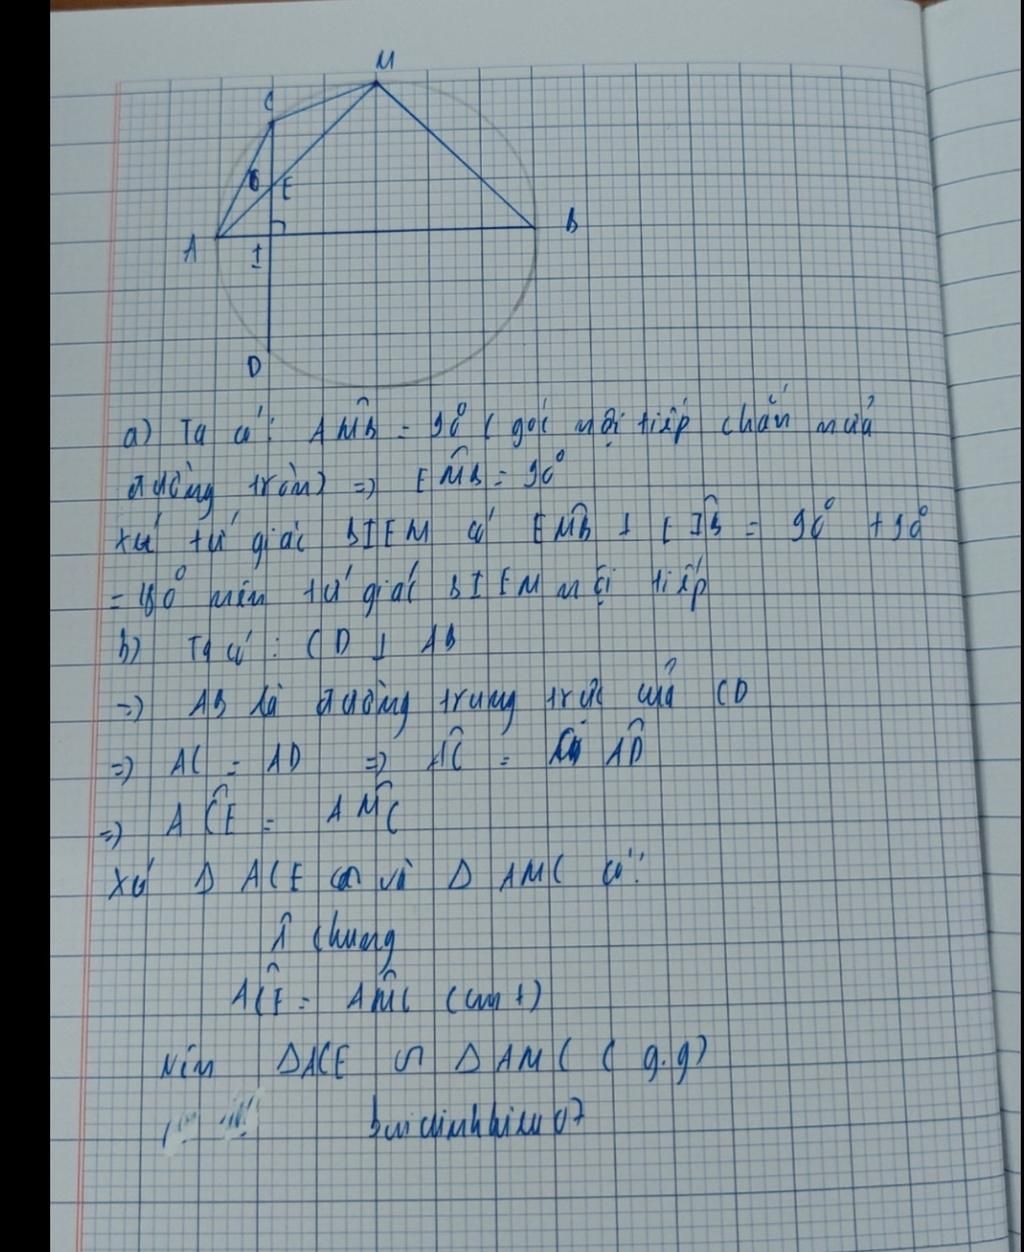 M
C
E
A
I
B
D
a) Ta có: AM̂B = 90° (góc nội tiếp chắn nửa
đường tròn) => EM̂B = 90°
Xét tứ giác BIEM có EM̂B + EÎB = 90° + 90°
= 180° nên tứ giác BIEM nội tiếp
b) Ta có: CD ⊥ AB
=> AB là đường trung trực của CD
=> AC = AD => AC̑ = AD̑
=> AĈE = AM̂C
Xét Δ ACE và Δ AMC có:
Â chung
AĈE = AM̂C (cmt)
Nên ΔACE ∽ ΔAMC (g.g)
buidinhhieu07